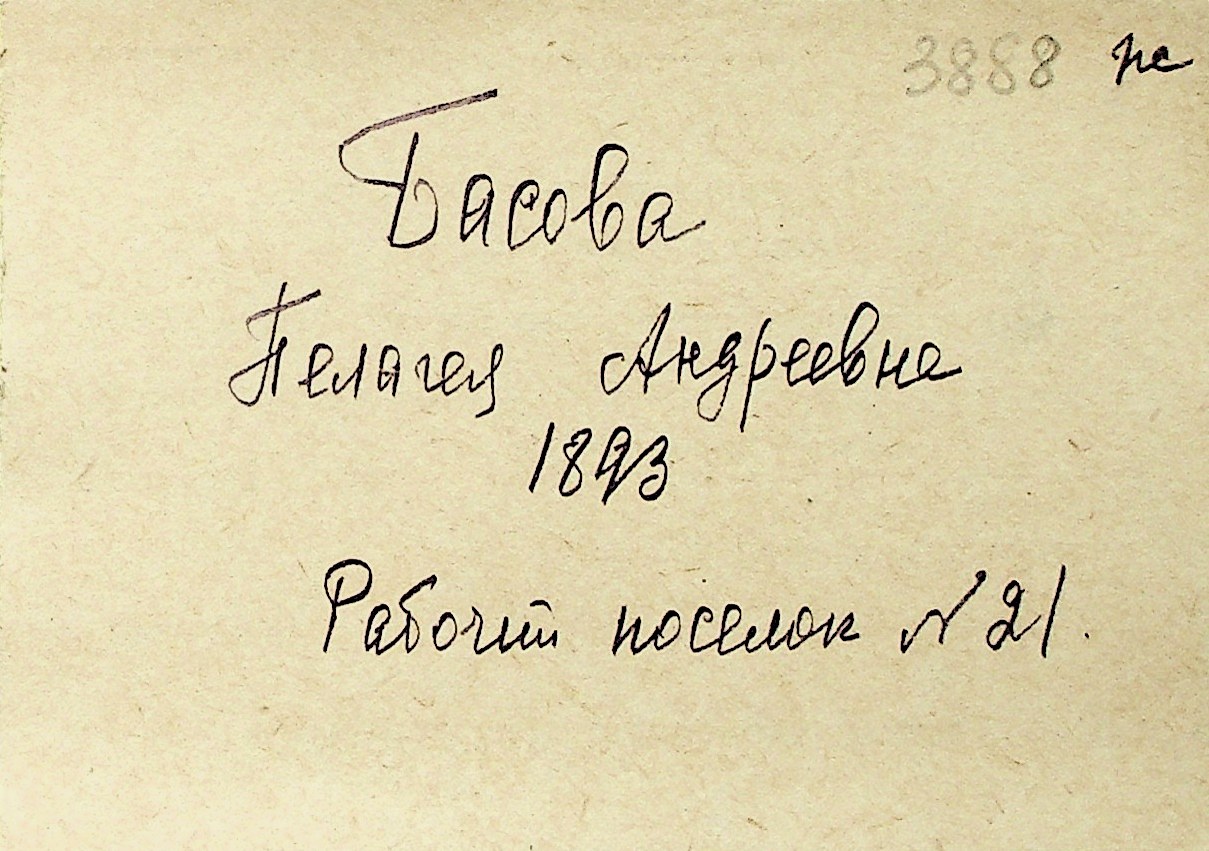 3888 пс
Басова
Пелагея Андреевна
1893
Рабочий поселок N 21.